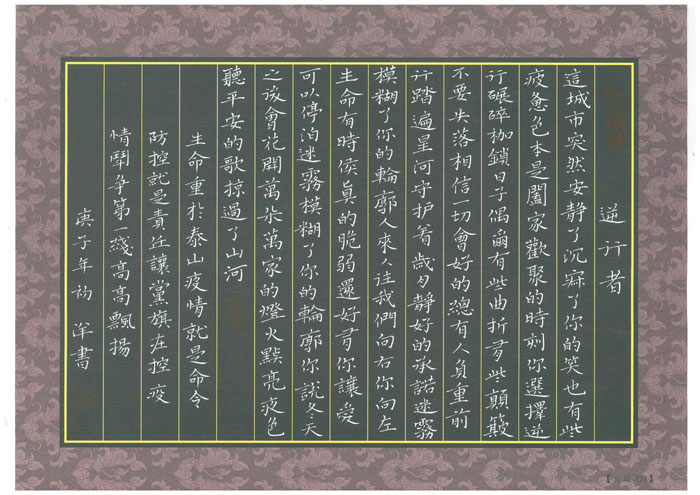 逆行者
這城市突然安靜了沉寂了你的笑也有些
疲惫色本是闔家歡聚的時刻你選擇逆
行碾碎枷鎖日子偶爾有些曲折有些顛簸
不要失落相信一切會好的總有人負重前
行踏遍星河守护着歲月靜好的承諾迷霧
模糊了你的輪廓人來人往我們向右你向左
生命有時候真的脆弱還好有你讓愛
可以停泊迷霧模糊了你的輪廓你說冬天
之後會花開萬朵萬家的燈火點亮夜色
聽平安的歌掠過了山河
生命重於泰山疫情就是命令
防控就是責任讓黨旗在控疫
情鬪争第一綫高高飄揚
庚子年初 洋書